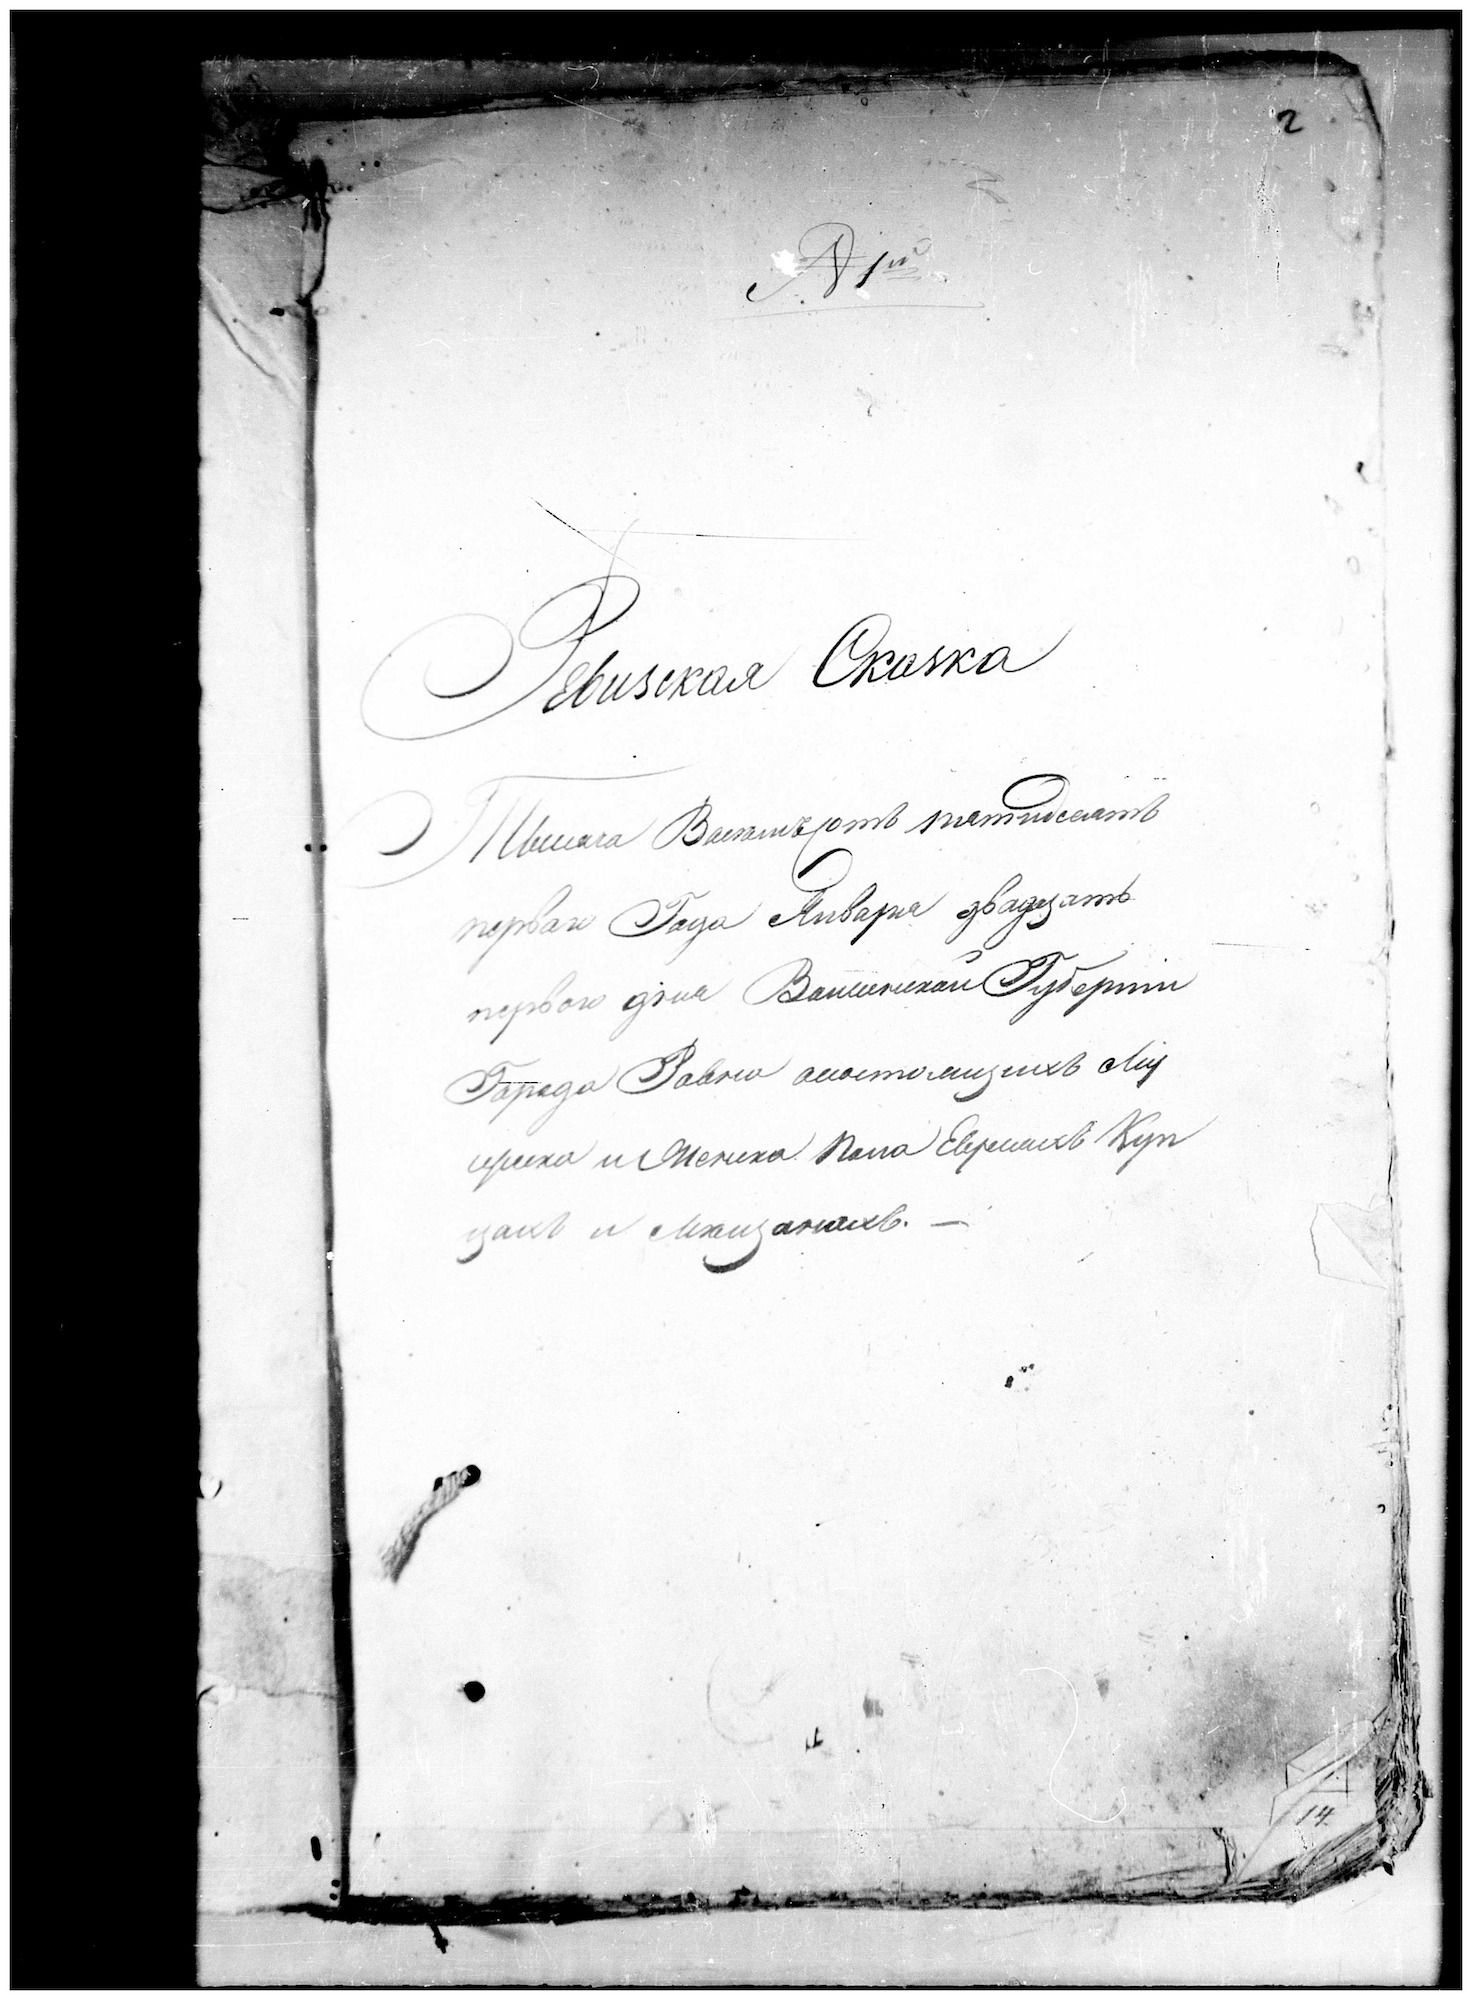 2
№ 1й
Ревизская Сказка
Тысяча Восемьсотъ пятидесятъ
перваго Года Января двадцать
перваго дня Волынской Губерніи
Города Ровно о состоящихъ Му
жеска и Женска пола Евреяхъ Куп
цахъ и Мещанахъ. —
14.